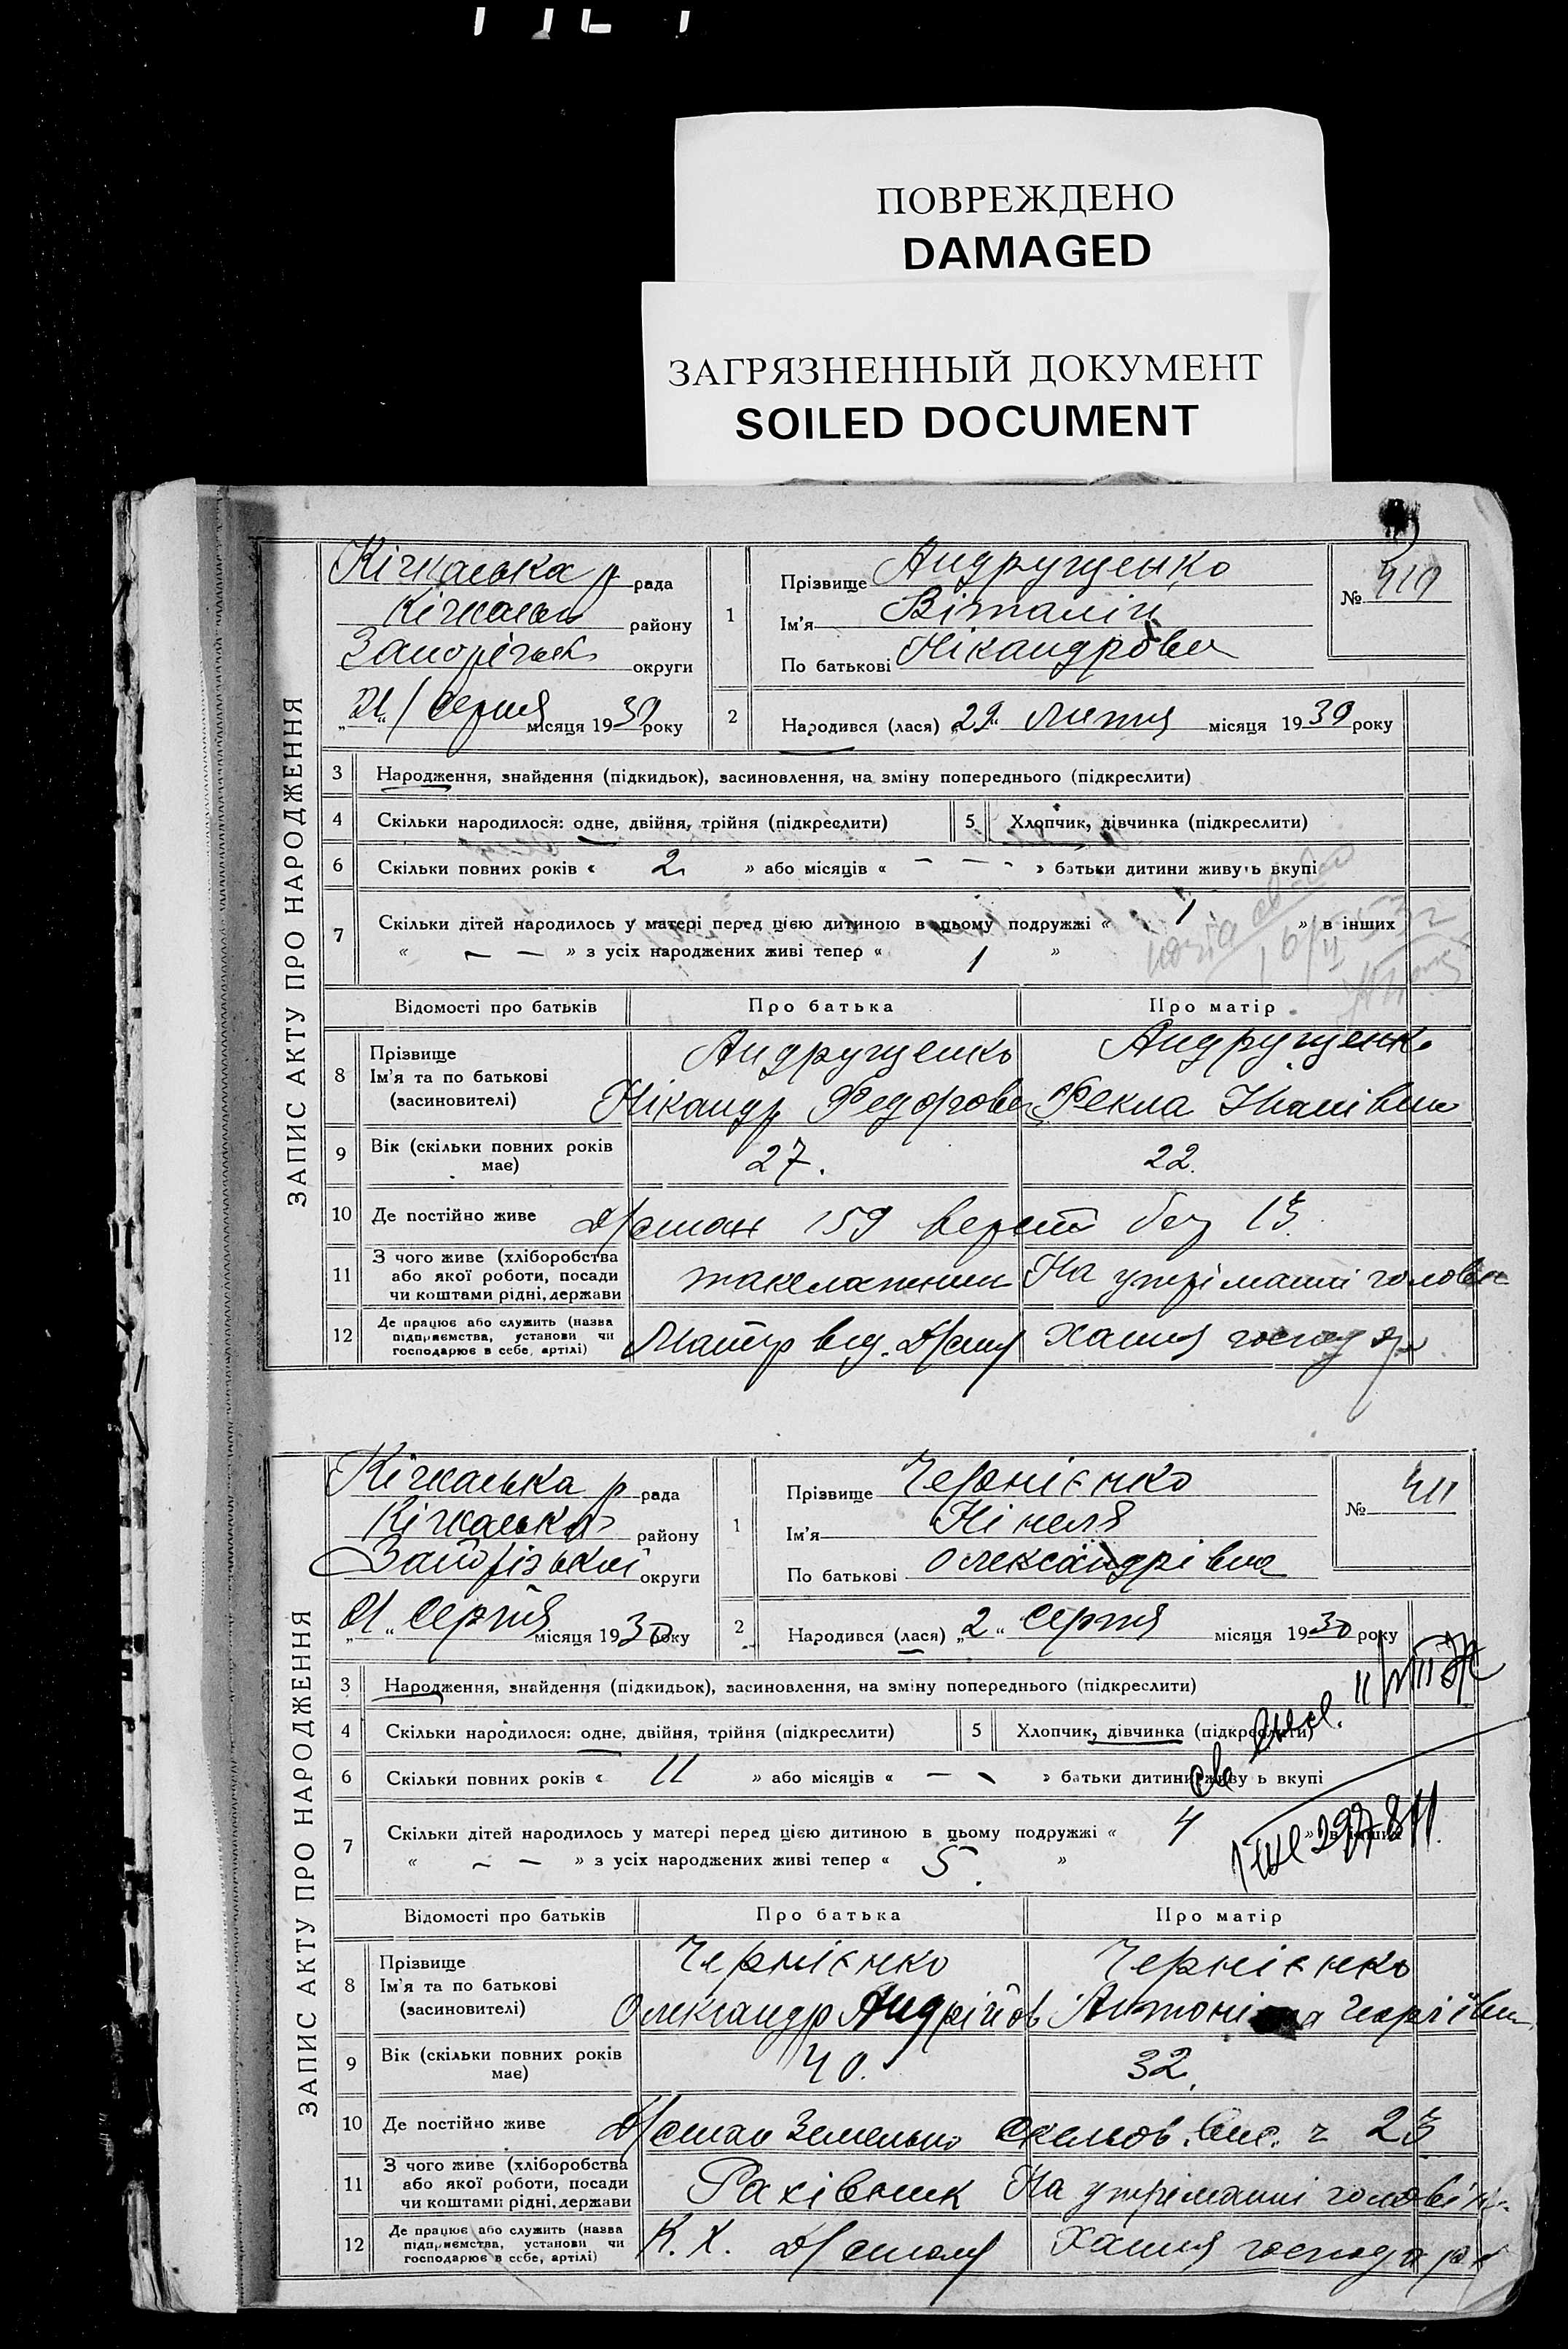 ПОВРЕЖДЕНО
DAMAGED
ЗАГРЯЗНЕННЫЙ ДОКУМЕНТ
SOILED DOCUMENT
ЗАПИС АКТУ ПРО НАРОДЖЕННЯ
Кічкаська р рада
району
округи
Серпня місяця 19 року
1
Прізвище Андрущенко
Ім'я Віталій
По батькові Нікандрович
№ 410
2 Народився (лася) „29“ Липня місяця 1930 року
3 Народження, знайдення (підкидьок), засиновлення, на зміну попереднього (підкреслити)
4 Скільки народилося: одне, двійня, трійня (підкреслити) 5 Хлопчик, дівчинка (підкреслити)
6 Скільки повних років « 2 » або місяців « — — » батьки дитини живуть вкупі
7 Скільки дітей народилось у матері перед цією дитиною в цьому подружжі « 1 » в інших
« — — » з усіх народжених живі тепер « 1 »
Відомості про батьків Про батька Про матір
8 Прізвище Ім'я та по батькові (засновителі)
Андрущенко Андрущенко
Нікандр Федорович Фекла Іванівна
9 Вік (скільки повних років має) 27. 22.
10 Де постійно живе Д/стан 159
11 З чого живе (хліборобства або якої роботи, посади чи коштами рідні, держави
такелажник На утріманні чоловіка
12 Де працює або служить (назва підприємства, установи чи господарює в себе, артілі)
від. Д/стану Хатня господар
ЗАПИС АКТУ ПРО НАРОДЖЕННЯ
Кічкаська р рада
Кічкаська району
Запорізької округи
Серпня місяця 1930 року
1
Прізвище Чернієнко
Ім'я Нінеля
По батькові Олександрівна
№ 411
2 Народився (лася) „2“ Серпня місяця 1930 року
3 Народження, знайдення (підкидьок), засиновлення, на зміну попереднього (підкреслити)
4 Скільки народилося: одне, двійня, трійня (підкреслити) 5 Хлопчик, дівчинка (підкреслити)
6 Скільки повних років « 11 » або місяців « — — » батьки дитини живу ь вкупі
7 Скільки дітей народилось у матері перед цією дитиною в цьому подружжі « 4 » в інших
« — — » з усіх народжених живі тепер « 5 »
Відомості про батьків Про батька Про матір
8 Прізвище Ім'я та по батькові (засиновителі)
Чернієнко Чернієнко
Олександр Андрійов Антоніна Георгіївна
9 Вік (скільки повних років має) 40. 32.
10 Де постійно живе Д/стан
11 З чого живе (хліборобства або якої роботи, посади чи коштами рідні, держави
Рахівник На утріманні чоловіка
12 Де працює або служить (назва підприємства, установи чи господарює в себе, артілі)
К. Х. Д/стану Хатня господарк